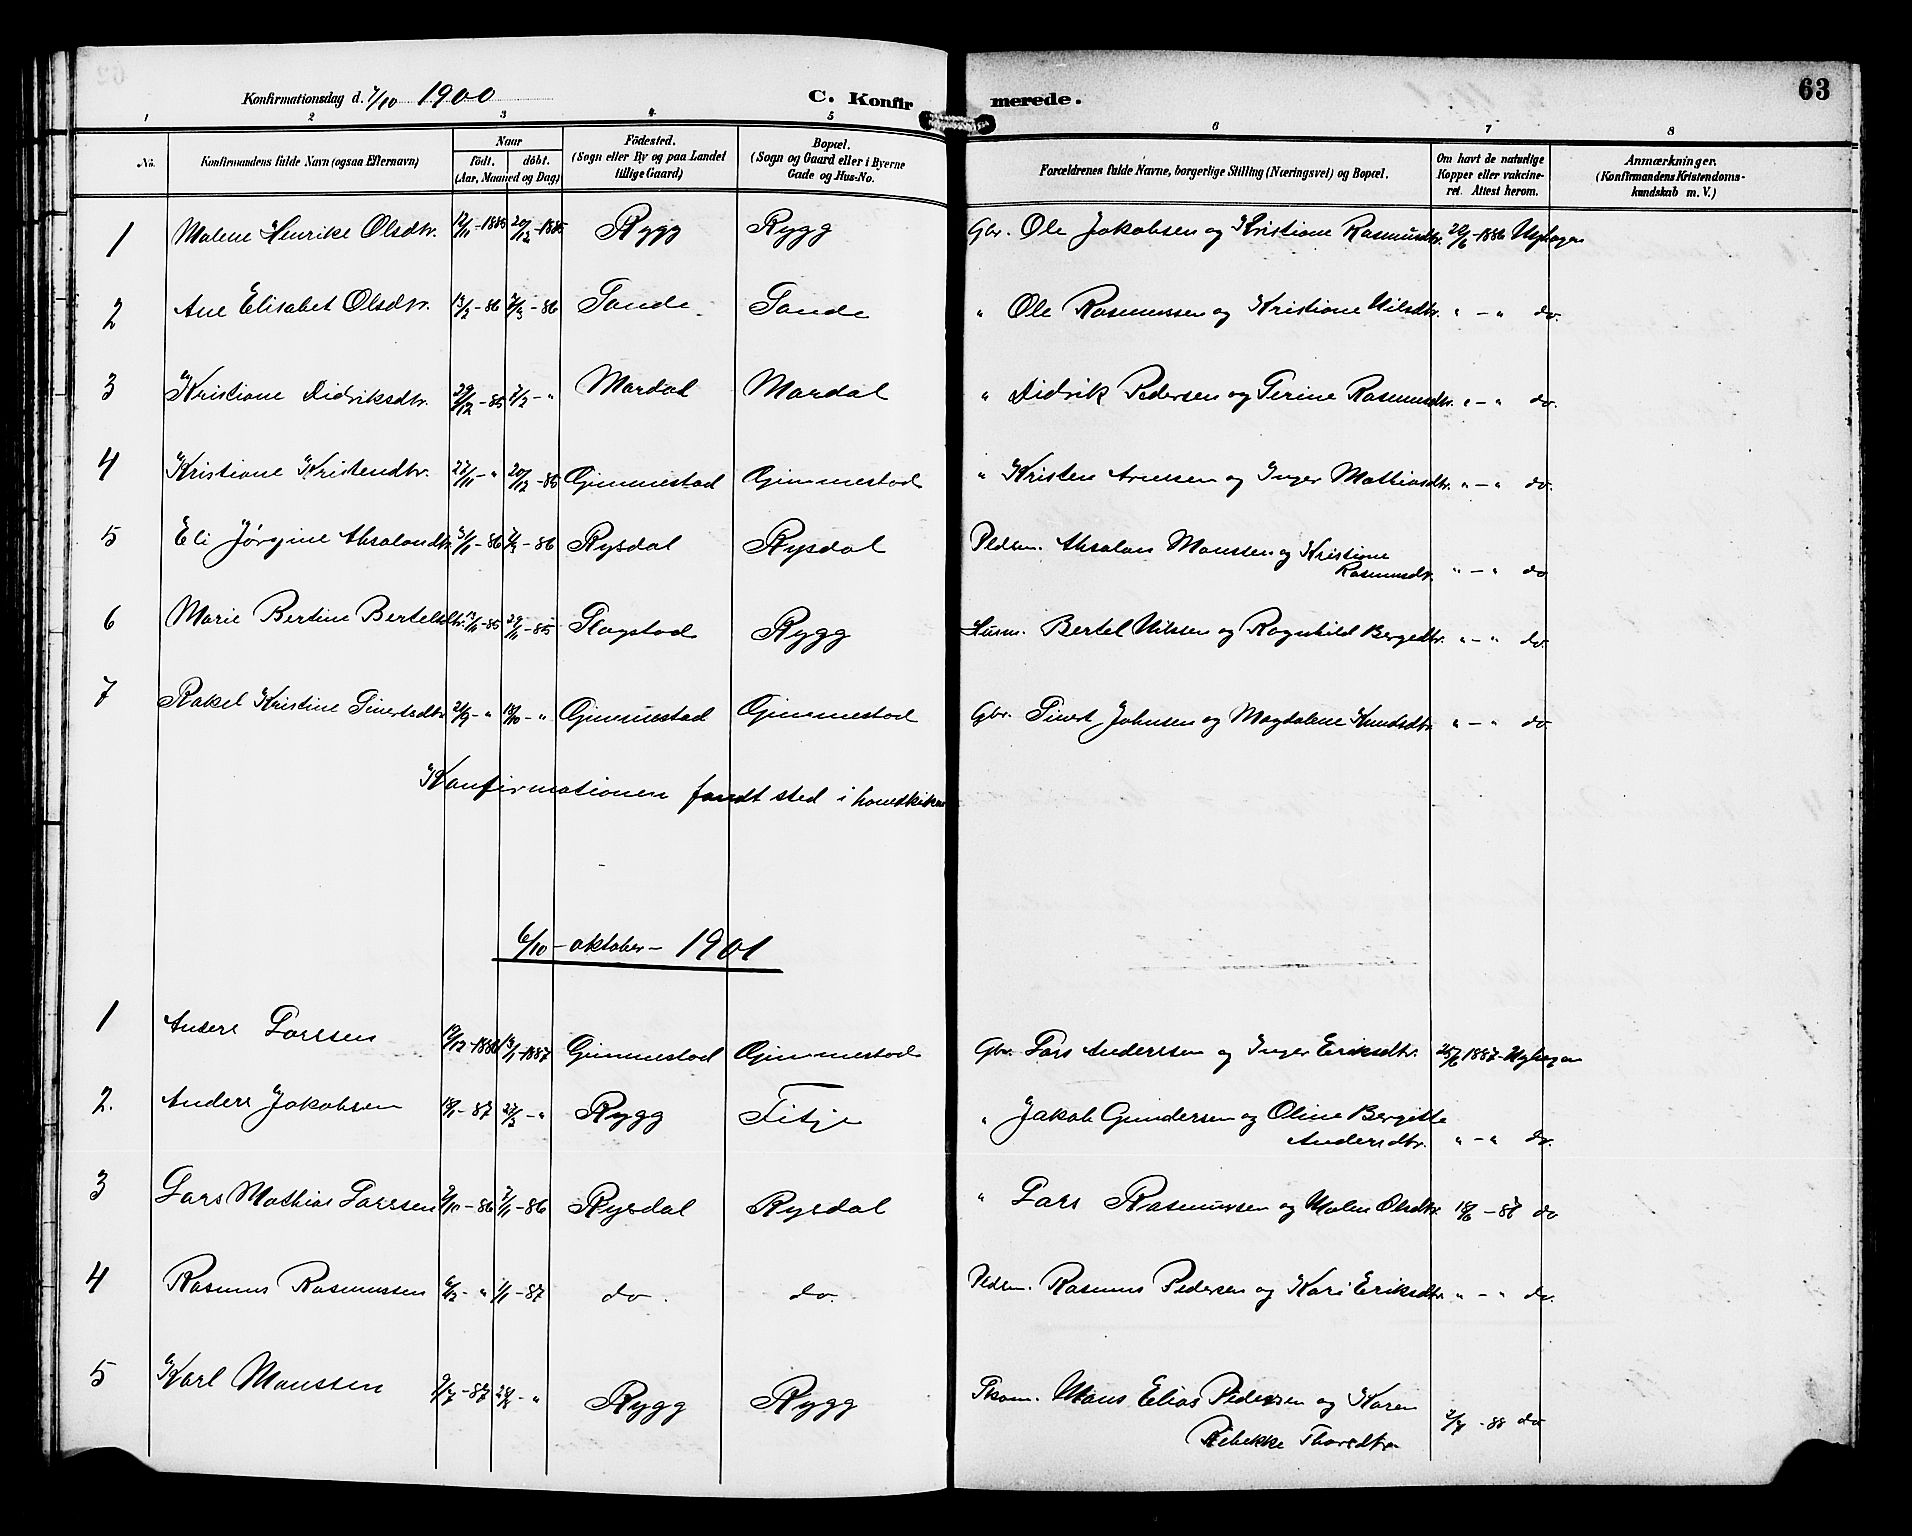 63
Konfirmationsdag d. 7/10 1900 C. Konfirmerede.
1 2 3 4 5 6 7 8
No. Konfirmandens fulde Navn (ogsaa Efternavn) Naar født. døbt. (Aar, Maaned og Dag) Fødested. (Sogn eller By og paa Landet tillige Gaard) Bopæl. (Sogn og Gaard eller i Byerne Gade og Hus-No. Forældrenes fulde Navne, borgerlige Stilling (Næringsvei) og Bopæl. Om havt de naturlige Kopper eller vakcineret. Attest herom. Anmærkninger. (Konfirmandens Kristendomskundskab m. V.)
1 Malene Henrike Olsdtr. 12/11-1885 20/12-1885 Rygg Rygg Gbr. Ole Jakobsen og Kristiane Rasmusdtr. 20/6-1886
2 Ane Elisabet Olsdtr. 13/2-86 7/3-86 Sande Sande " Ole Rasmussen og Kristiane Nilsdtr. " - " do.
3 Kristiane Didriksdtr. 29/12-85 7/2- " Mardal Mardal " Didrik Pedersen og Serine Rasmusdtr. " - " do.
4 Kristiane Kristendtr. 22/11- " 20/12-85 Gimmestad Gimmestad " Kristen Arnesen og Inger Mathiasdtr. " - " do.
5 Eli Jørgine Absalondtr. 3/1-86 7/2-86 Rysdal Rysdal Pldsm. Absalon Monssen og Kristiane
Rasmusdtr. " - " do
6 Marie Bertine Berteldtr. 29/11-85 Flagstad Rygg Husm. Bertel Nilssen og Ragnhild Bergedtr. " - " do.
7 Rakel Kristine Sivertsdtr. 2/9- " 18/10- " Gimmestad Gimmestad Gbr. Sivert Johnsen og Magdalene Knudsdtr. " - " do.
Konfirmationen fandt sted i hovedkirken
6/10 - oktober - 1901
1 Anders Larssen 19/12-1886 13/1-1887 Gimmestad Gimmestad Gbr. Lars Anderssen og Inger Eriksdtr. 25/6 1887
2. Anders Jakobsen 18/1-87 27/3- " Rygg Fitje " Jakob Gundersen og Oline Bergitte
Andersdtr. " - " do.
3 Lars Mathias Larssen 9/10-86 7/11-86 Rysdal Rysdal " Lars Rasmussen og Malen Olsdtr. 18/6-87 do
4 Rasmus Rasmussen 6/12- " 1/1-87 do. do. Pldsm. Rasmus Pedersen og Kari Eriksdtr. " - " do.
5 Karl Monssen 9/7-87 24/7- " Rygg Rygg Mons Elias Pedersen og Karen
Rebekke Thoredtr. 3/7-88 do